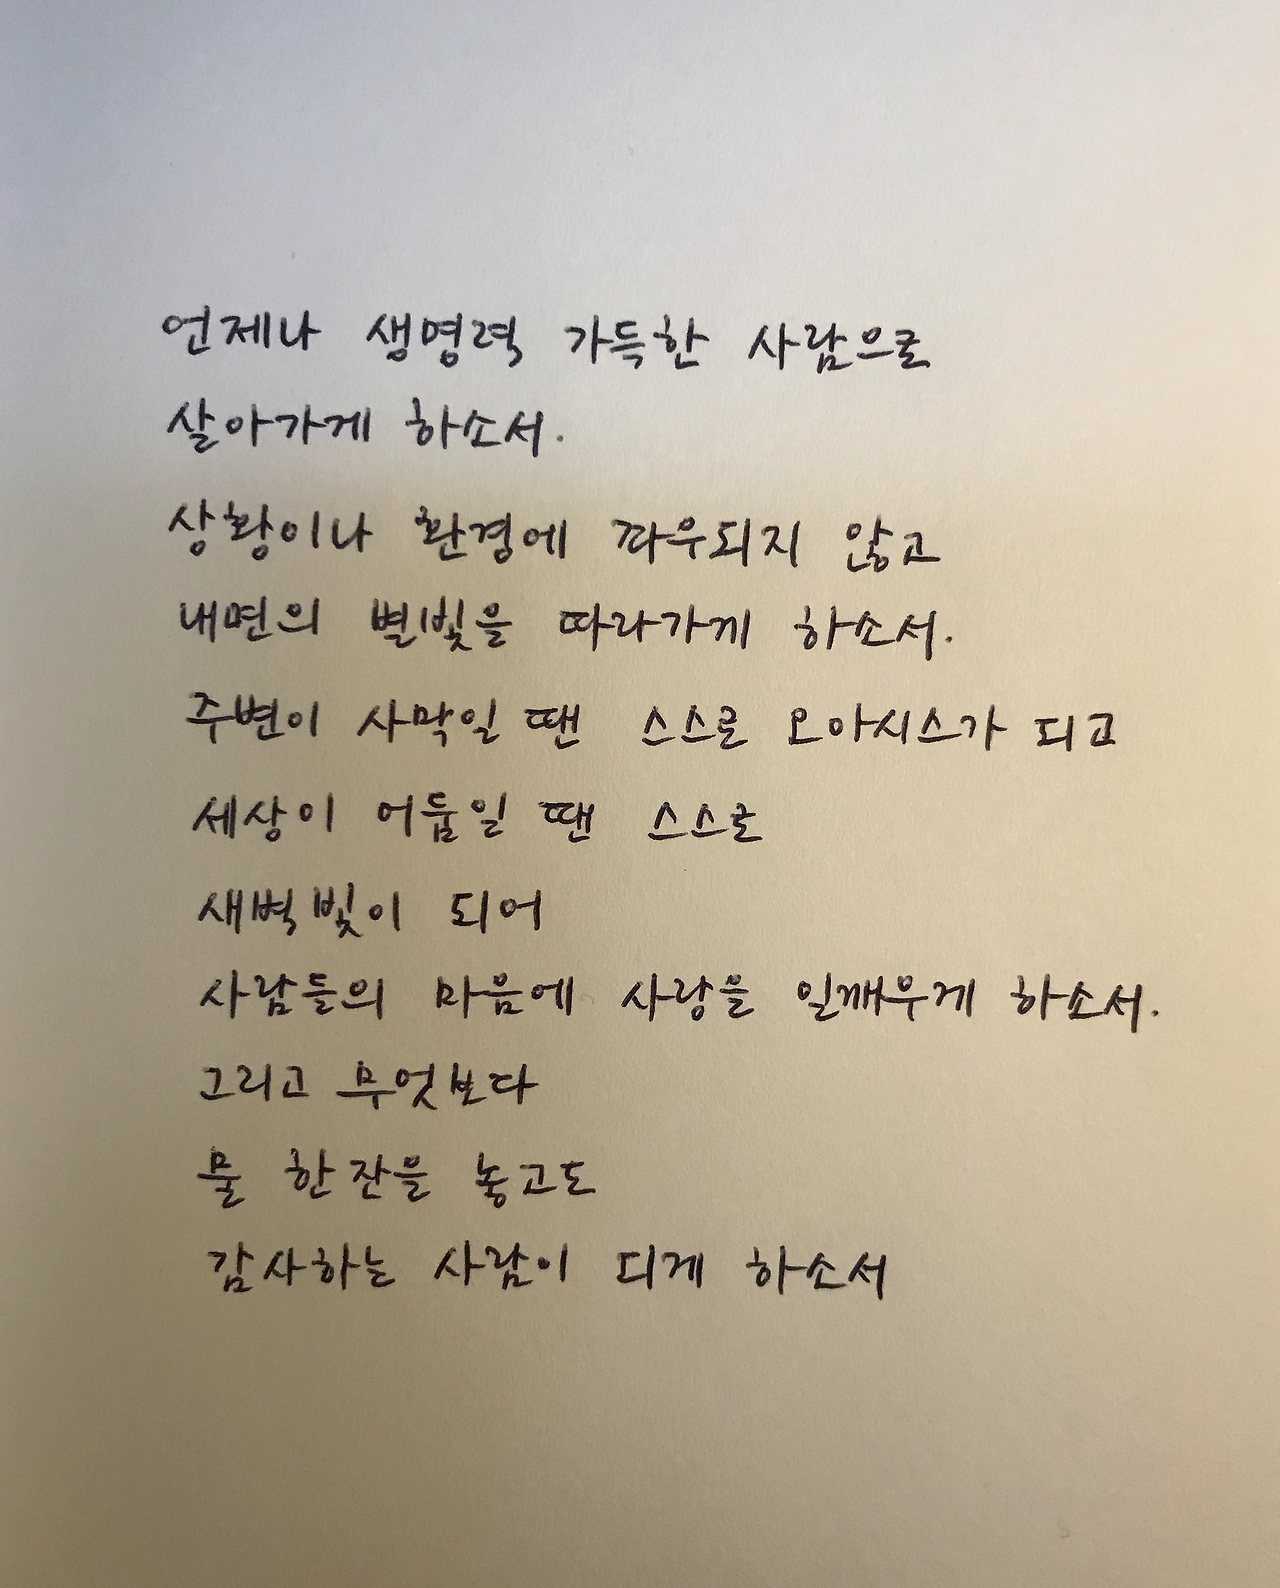 언제나 생명력 가득한 사람으로
살아가게 하소서.
상황이나 환경에 좌우되지 않고
내면의 별빛을 따라가게 하소서.
주변이 사막일 땐 스스로 오아시스가 되고
세상이 어둠일 땐 스스로
새벽빛이 되어
사람들의 마음에 사랑을 일깨우게 하소서.
그리고 무엇보다
물 한잔을 놓고도
감사하는 사람이 되게 하소서